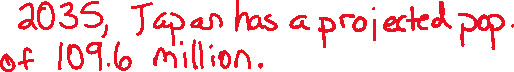 2035, Japan has a projected pop.
of 109.6 million.